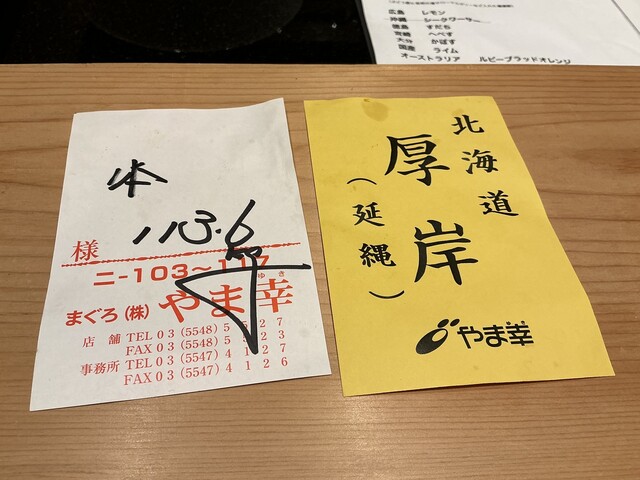 広島　レモン
沖縄　シークワーサー
徳島　すだち
宮崎　へべす
大分　かぼす
国産　ライム
オーストラリア　ルビーブラッドオレンジ
113.6
様
ニ-103～117
まぐろ（株）やま幸
ゆき
店舗 TEL 03（5548）5 27
FAX 03（5548）5 23
事務所 TEL 03（5547）4127
FAX 03（5547）4126
北海道
厚岸
（延縄）
やま幸